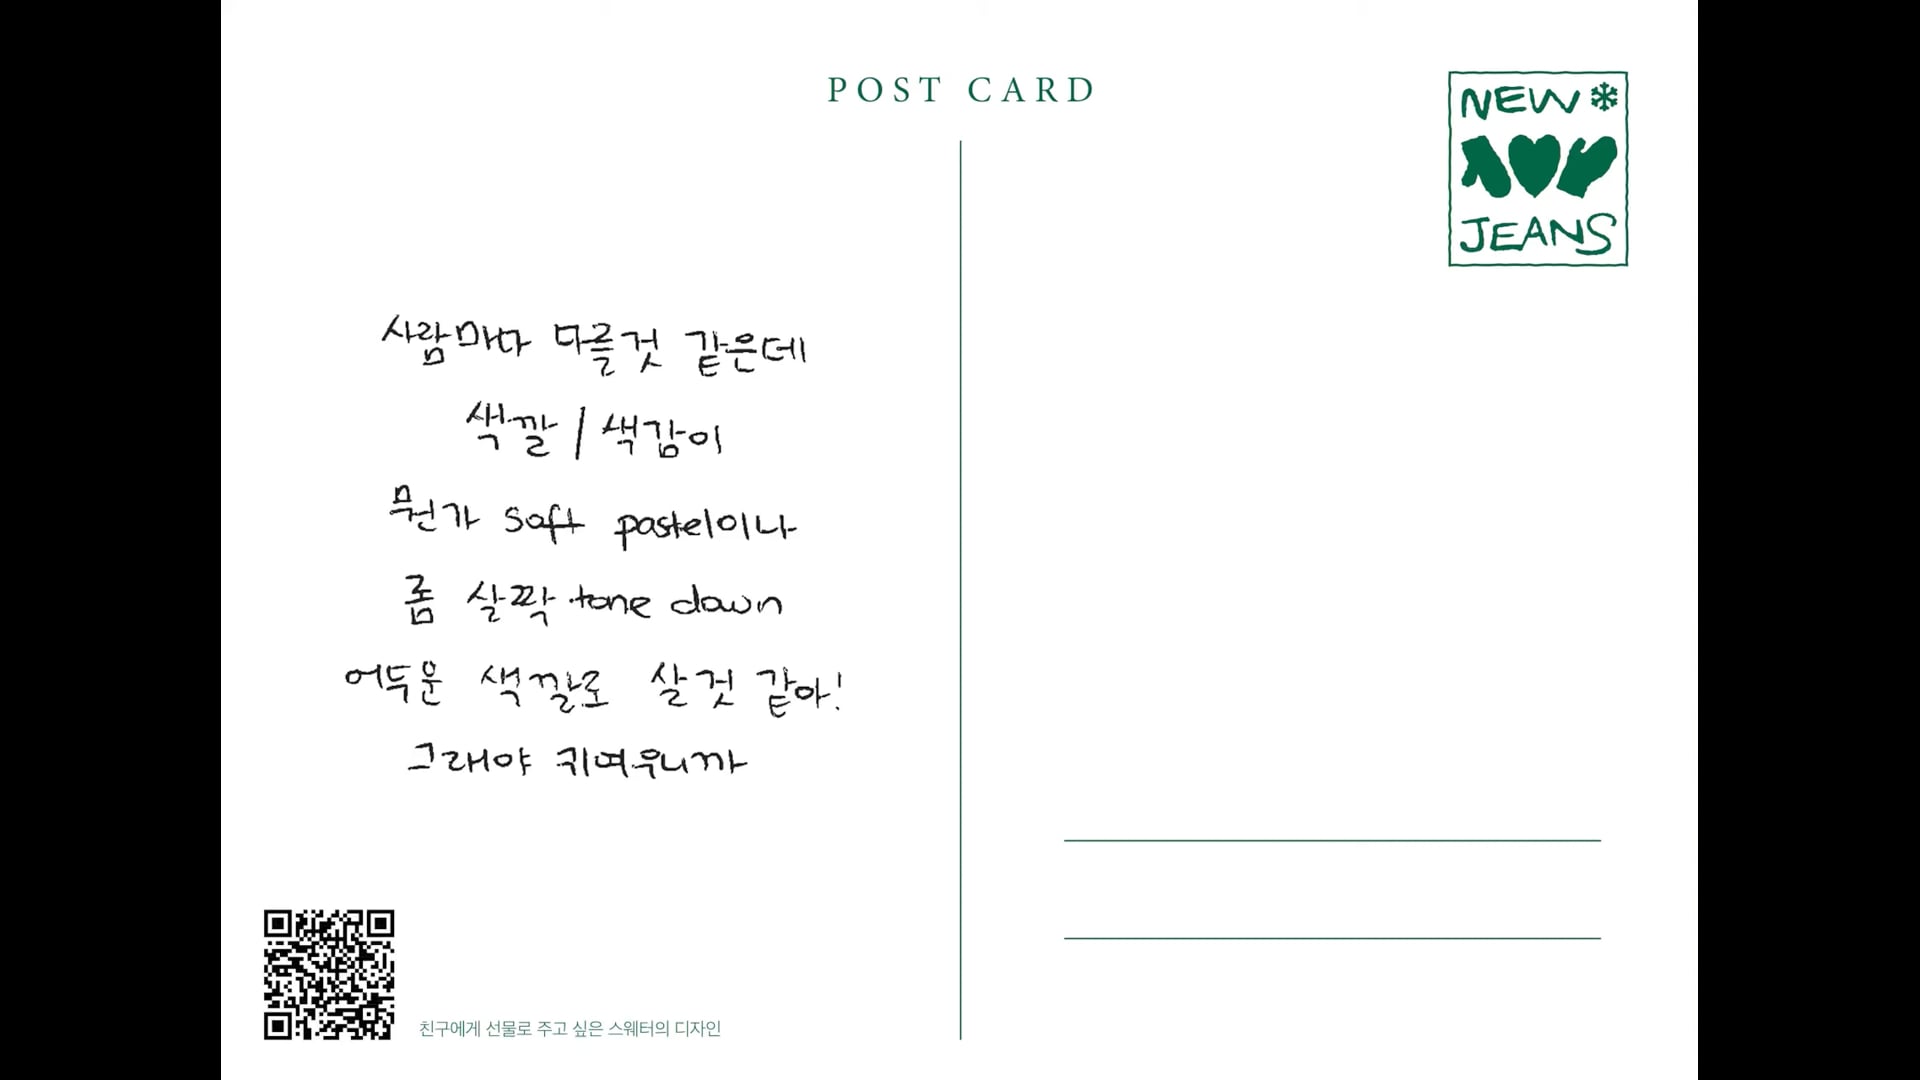 POST CARD
NEW
JEANS
사람마다 다를것 같은데
색깔 / 색감이
뭔가 soft pastel이나
좀 살짝 tone down
어두운 색깔로 살것 같아!
그래야 귀여우니까
친구에게 선물로 주고 싶은 스웨터의 디자인